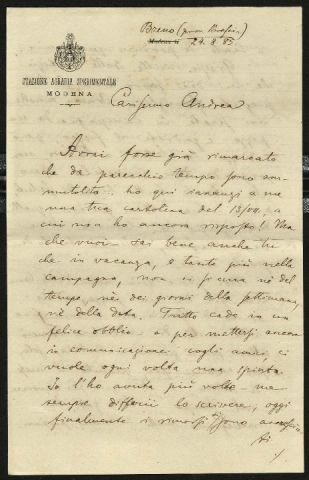 Breno (prov Brescia)
24. 8 85
STAZIONE AGRARIA SPERIMENTALE
MODENA
Carissimo Andrea
Avrai forse già rimarcato
che da parecchio tempo sono am-
mutolito. ho qui innanzi a me
una tua cartolina del
cui non ho ancora risposto! Ma
che vuoi. sai bene anche tu
che in vacanza, e tanto più nella
campagna, non si procura nè del
tempo, nè dei giorni della settimana,
nè della data. Tutto cade in un
felice obblio e per mettersi ancora
in comunicazione cogli amici, ci
vuole ogni volta una spinta.
Io l'ho avuta più volte ma
sempre differii lo scrivere, oggi
finalmente i rimorsi sono